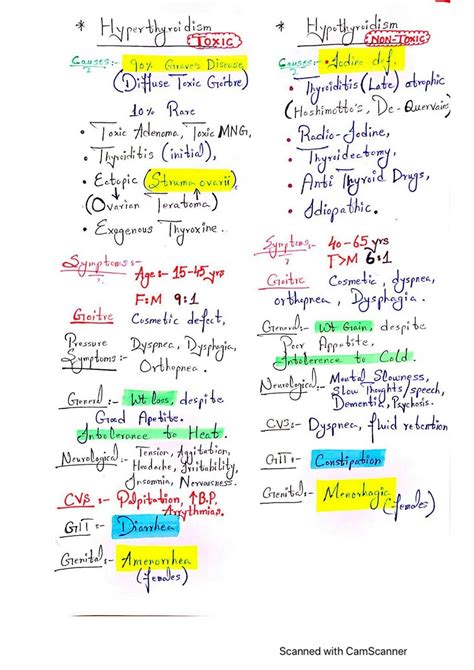 * Hyperthyroidism
(TOXIC)
Causes:- 90% Graves Disease,
(Diffuse Toxic Goitre)
10% Rare
• Toxic Adenoma, Toxic MNG,
• Thyroiditis (initial),
• Ectopic (Struma ovarii),
(Ovarian Teratoma)
• Exogenous Thyroxine.
Symptoms:-
Age:- 15-45 yrs
F:M 9:1
Goitre Cosmetic defect,
Pressure Symptoms:- Dyspnea, Dysphagia,
Orthopnea.
General:- Wt loss, despite
Good Apetite.
Intolerance to Heat.
Neurological:- Tension, Aggitation,
Headache, Irritability,
Insomnia, Nervousness.
CVS:- Palpitation, ↑B.P.
Arrythmias.
GIT:- Diarrhea
Genital:- Amenorrhea
(females)
* Hypothyroidism
(NON-TOXIC)
Causes:- • Iodine def.
• Thyroiditis (Late) atrophic
(Hashimotto's, De-Quervain)
• Radio-Iodine,
• Thyroidectomy,
• Anti Thyroid Drugs,
• Idiopathic.
Symptoms:- 40-65 yrs
F>M 6:1
Goitre Cosmetic, dyspnea,
orthopnea, Dysphagia.
General:- Wt Gain, despite
Poor Appetite,
Intolerence to Cold.
Neurological:- Mental Slowness,
Slow Thoughts/speech,
Dementia, Psychosis.
CVS:- Dyspnea, fluid retention
GIT:- Constipation
Genital:- Menorhagic
(females)
Scanned with CamScanner